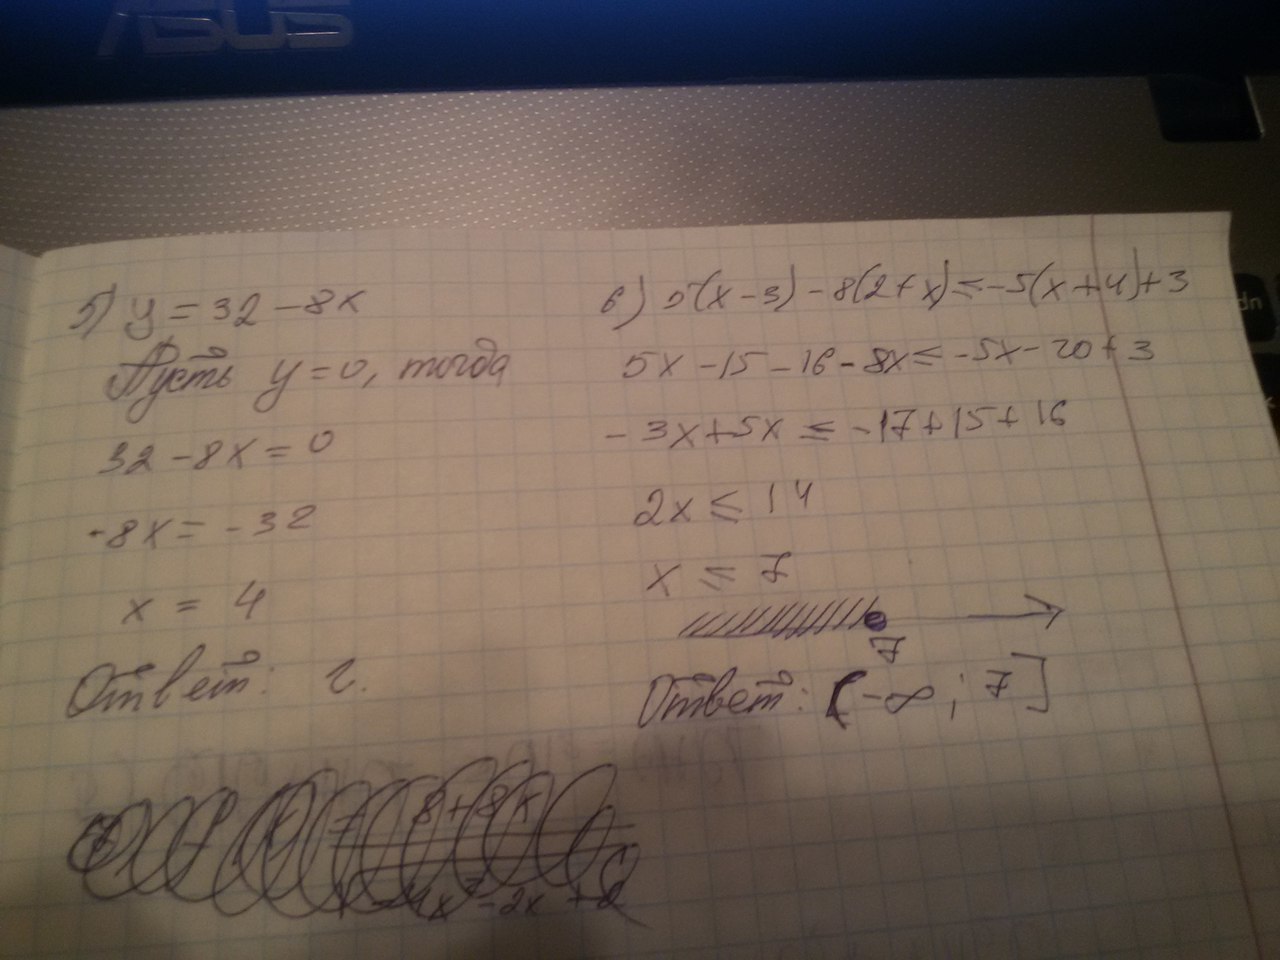 ASUS
5) y = 32 - 8x
Пусть y = 0, тогда
32 - 8x = 0
-8x = -32
x = 4
Ответ: г.
6) 5(x - 3) - 8(2 + x) ≤ -5(x + 4) + 3
5x - 15 - 16 - 8x ≤ -5x - 20 + 3
-3x + 5x ≤ -17 + 15 + 16
2x ≤ 14
x ≤ 7
7
Ответ: (-∞; 7]
8 + 8x
dn